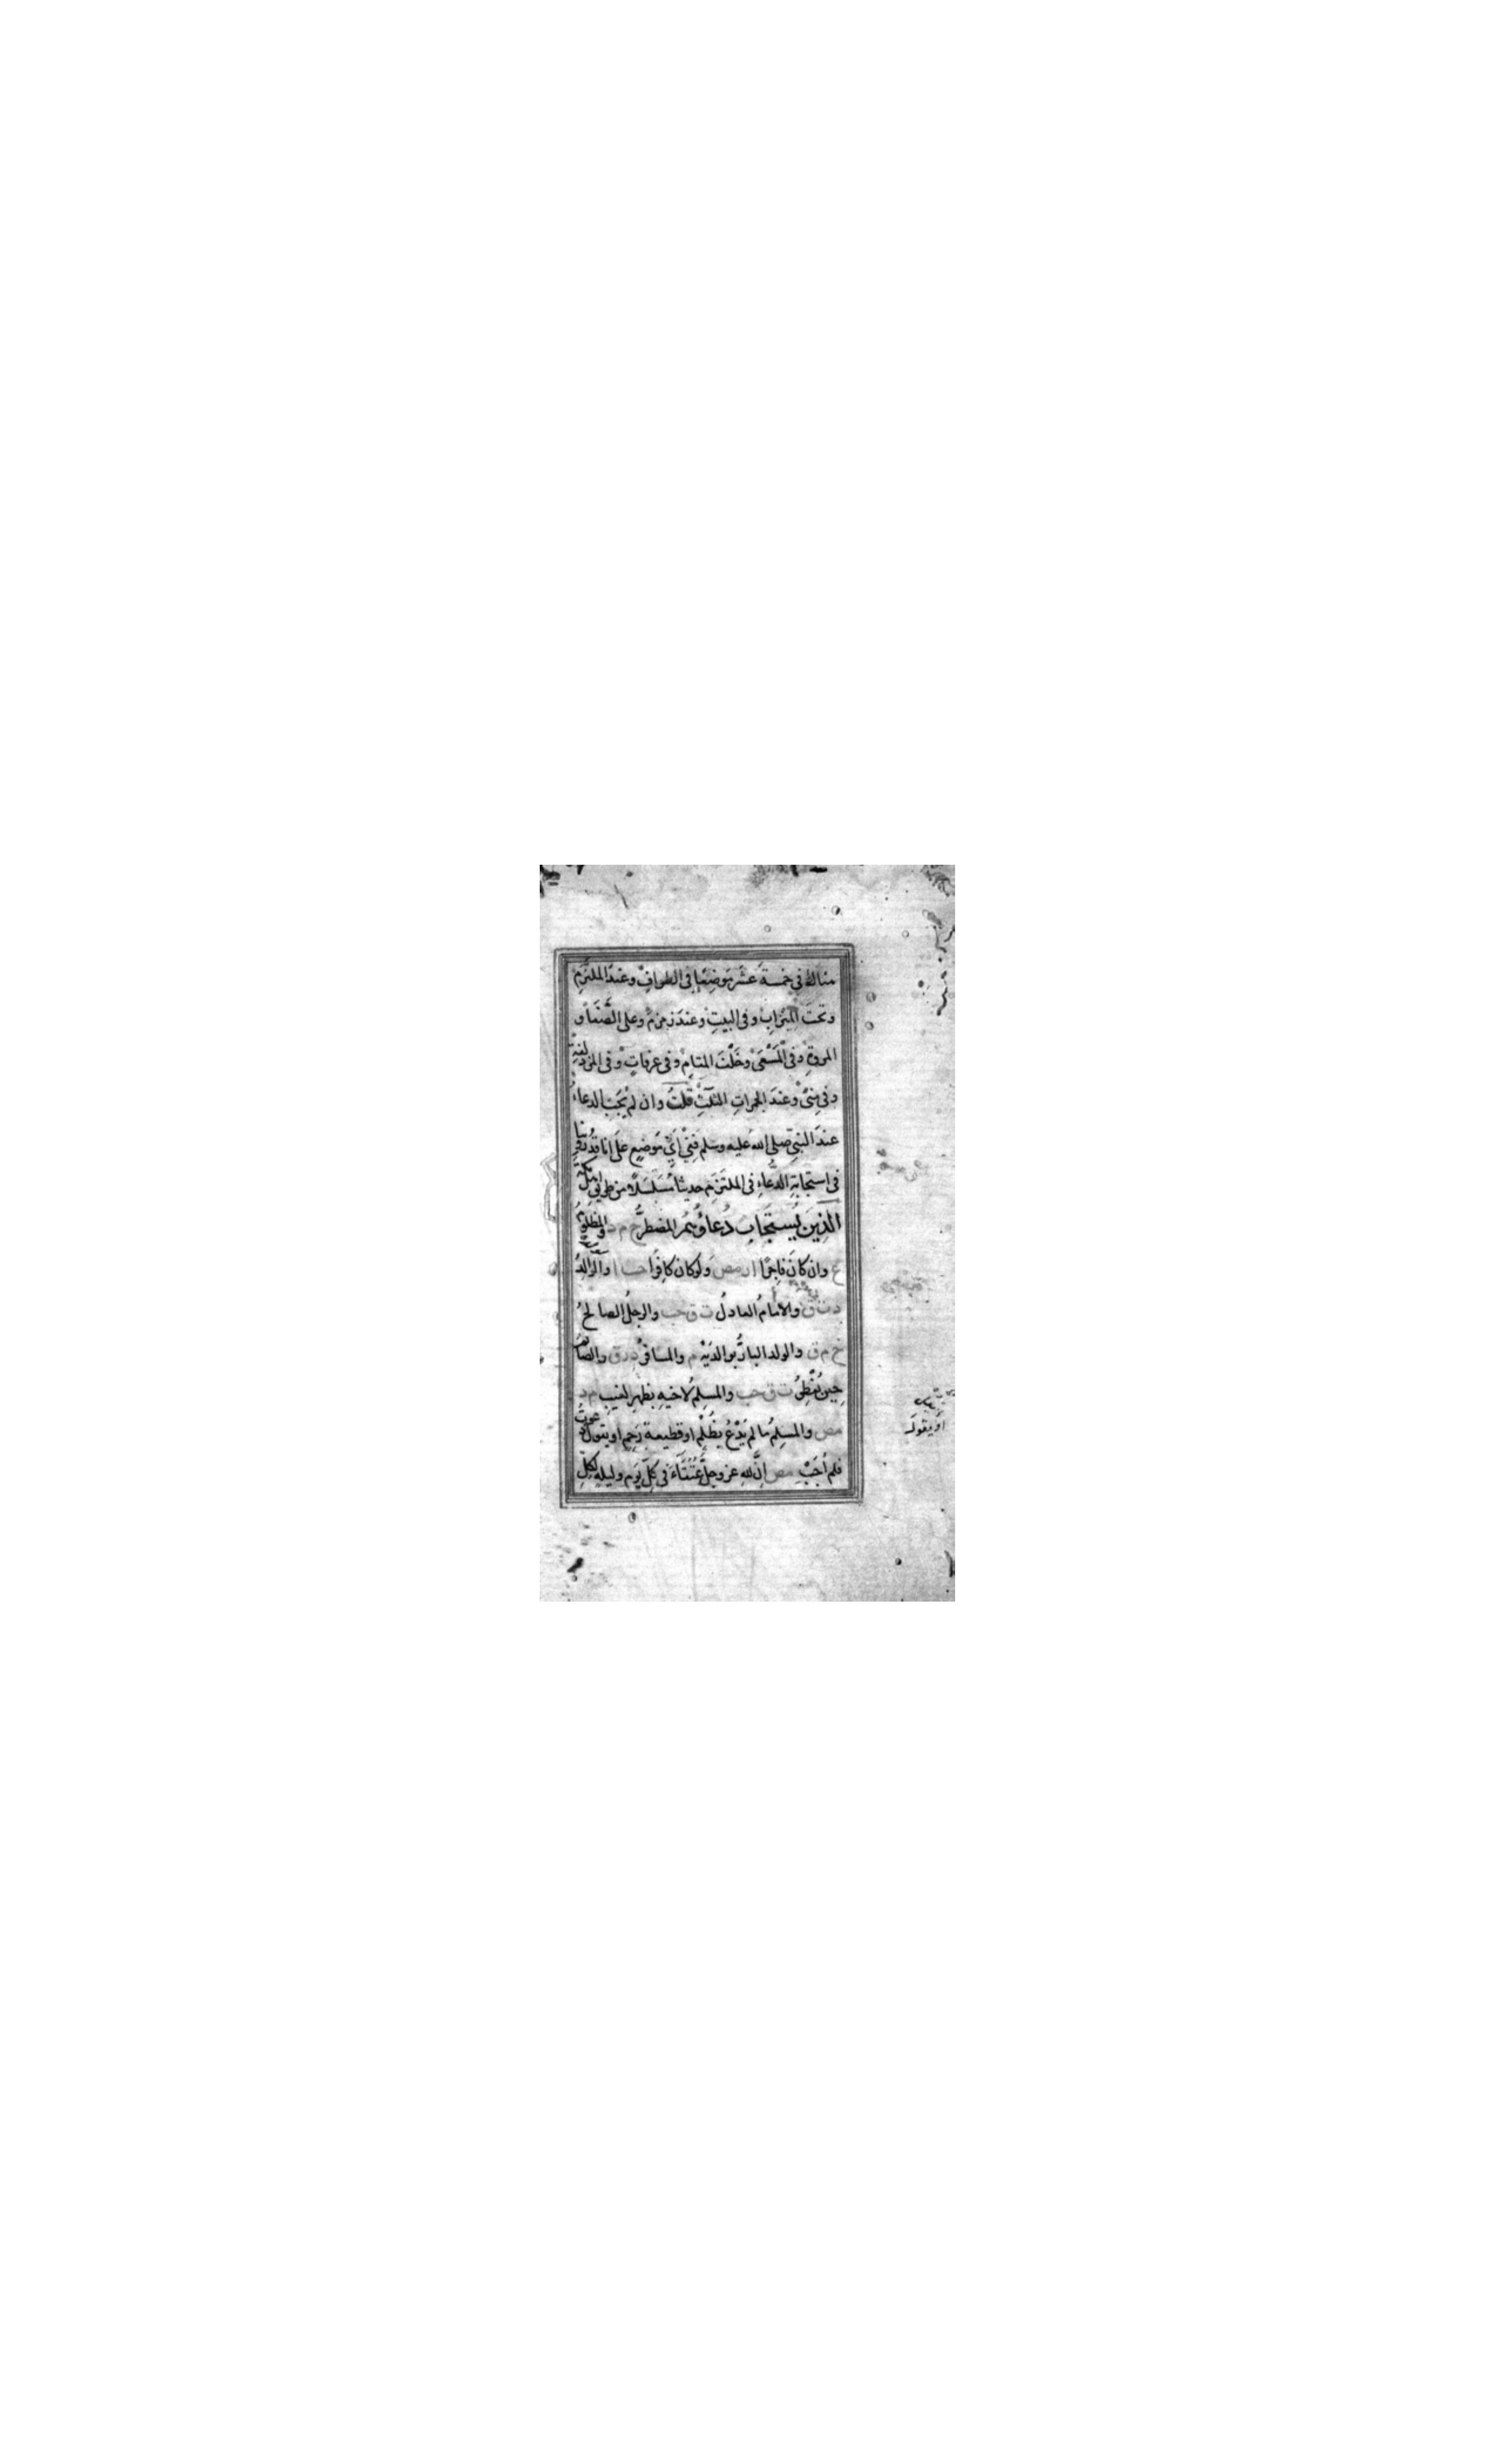 هناك في خمسة عَشَر مَوضِعًا فى الطوافِ وعندَ الملتزَمِ
وتحتَ الميزابِ وفى البيتِ وعندَ زمزمَ وعلى الصَّفَا و
المروةِ وفى المَسْعَى وخَلْفَ المقامِ وفى عرفاتٍ وفى المزدلفةِ
وفى مِنًى وعندَ الجمراتِ الثلٰثِ قُلتُ وان لم يُجَبِ الدعاءُ
عندَ النبىِّ صلى الله عليه وسلم فَفِى اَىِّ مَوضعٍ عَلَى انا قد رُوّينا
فى استجابةِ الدُّعاءِ فى الملتَزَمِ حديثا مُسَلْسَلاً من طريقِ اهل مكة
الّذينَ يُستَجَابُ دُعاؤُهُمُ المضطرُّ خ م د والمظلومُ
ع وان كانَ فاجِرًا ا ر مص ولو كان كافِرًا حب ا والوالدُ
د ت ق والامامُ العادلُ ت ق حب والرجلُ الصالحُ
خ م ق والولد البارُّ بوالدَيْهِ م والمسافرُ د ر ق والصائمُ
حِينَ يُفْطِرُ ت ق حب والمسلِمُ لاخيهِ بظَهْرِ الغيبِ م د
مص والمسلِمُ ما لم يَدْعُ بظُلْمٍ او قطيعة رَحِمٍ او يقول دعوتُ
فلم اُجَبْ مص اِنَّ للهِ عز وجلَّ عُتَقَاءَ فى كلِّ يَومٍ وليلةٍ لِكُلِّ
او يقول